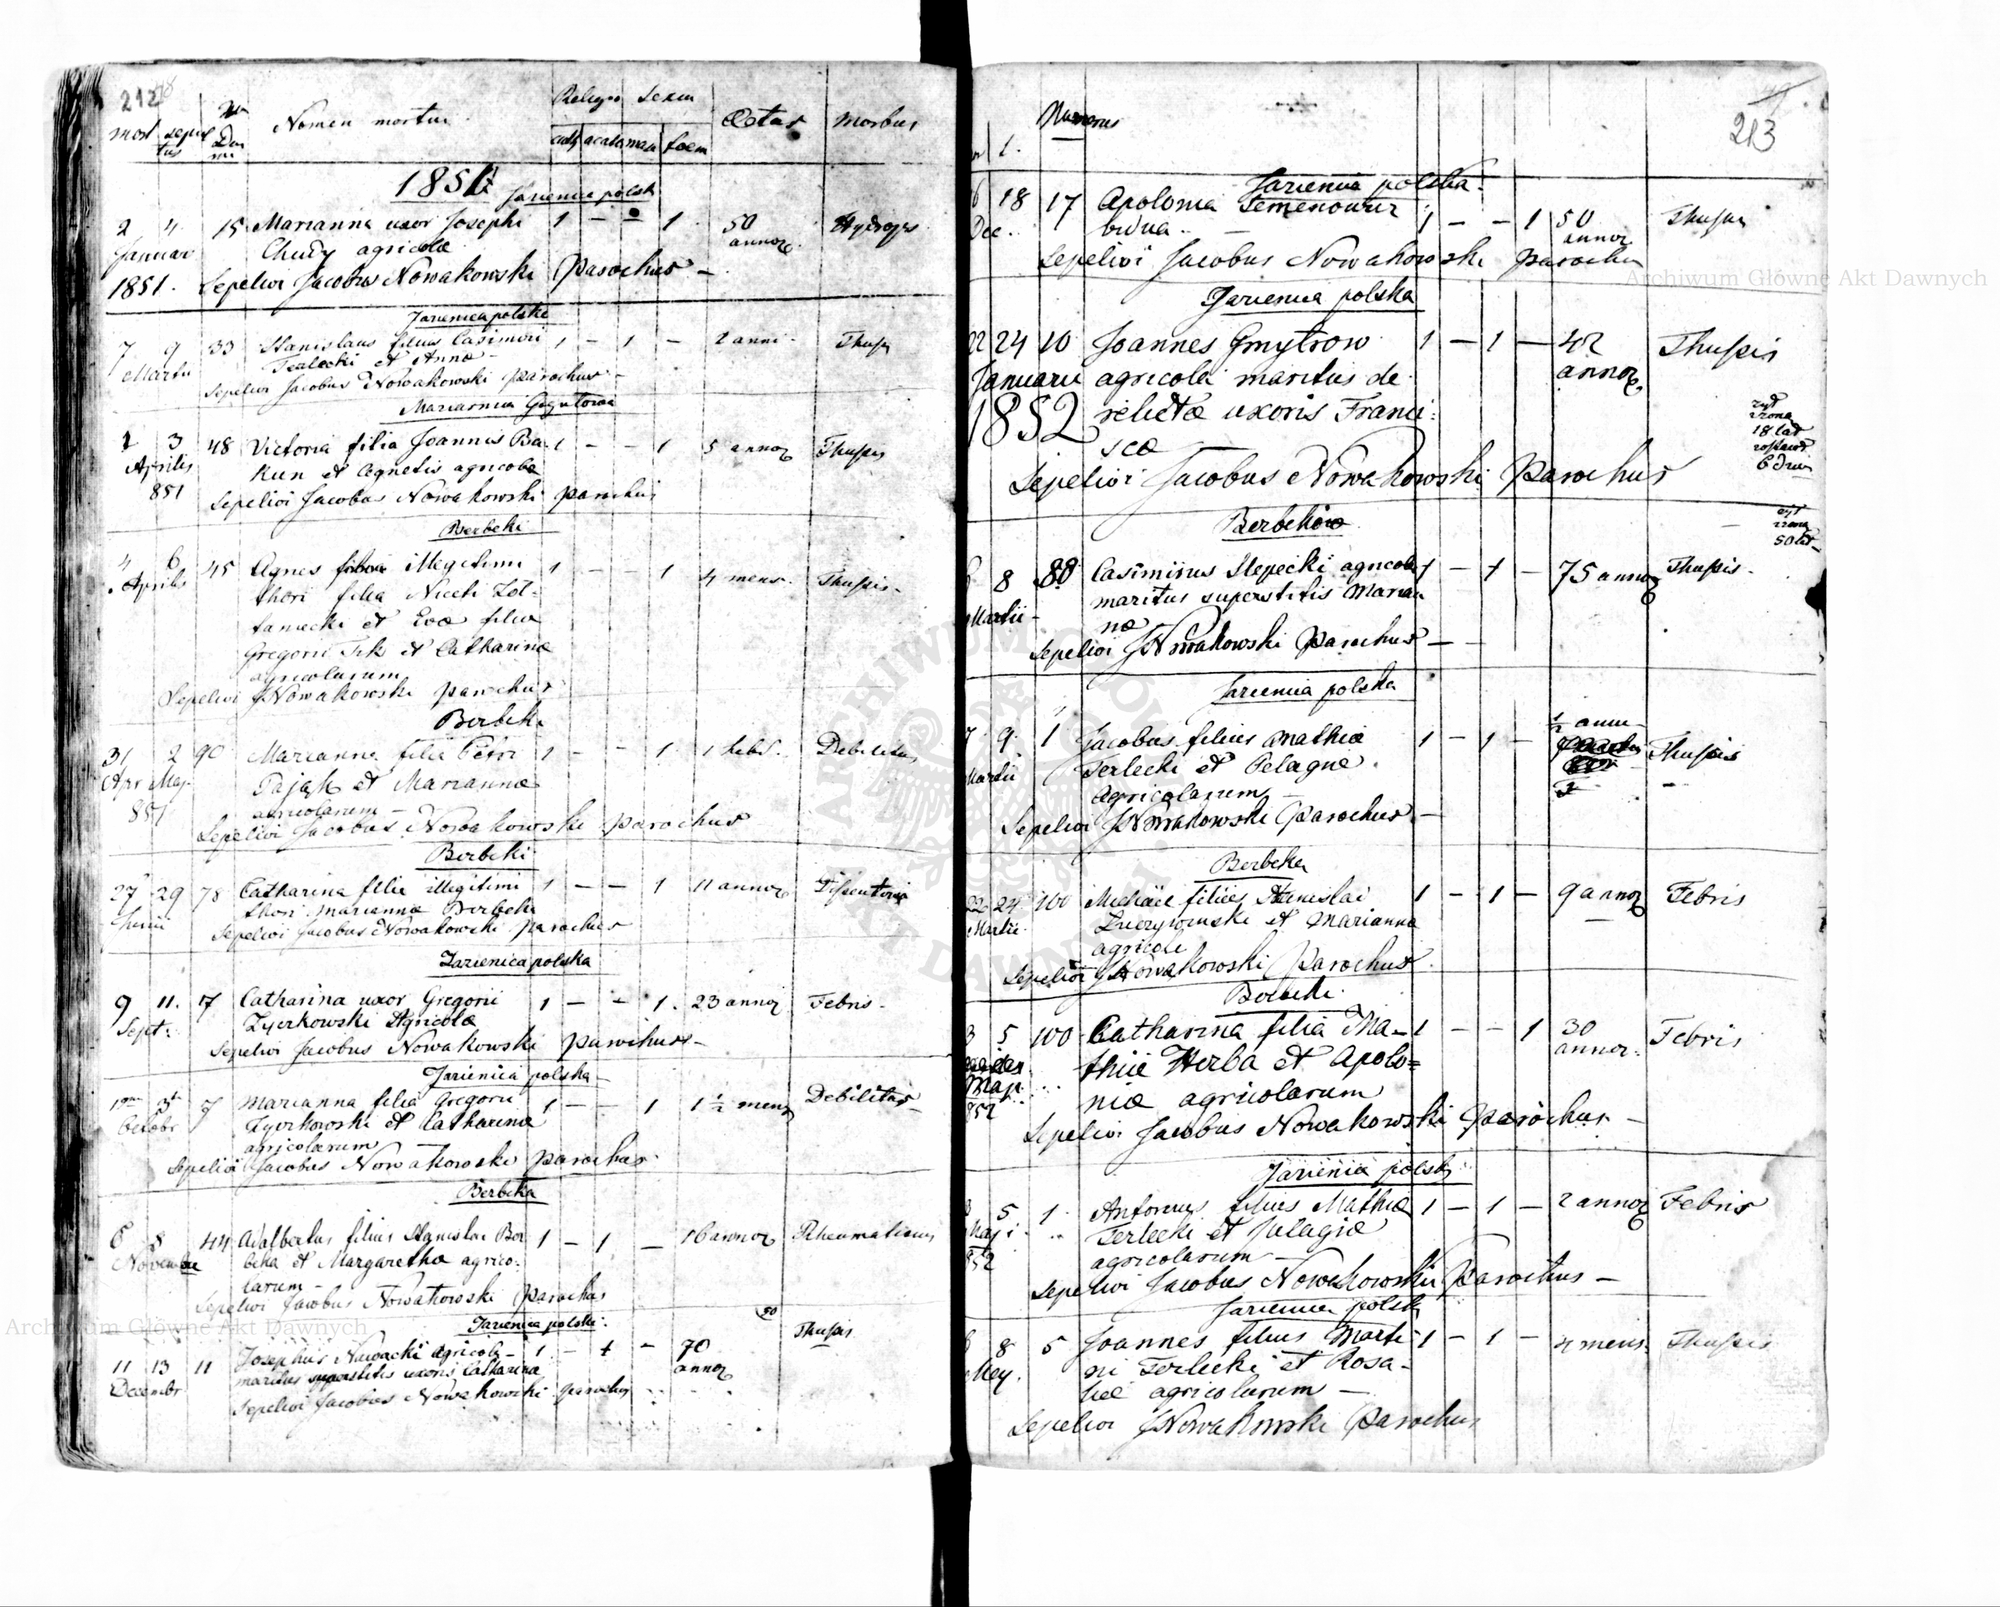 212
mort sepul tus Nr Domi Nomen mortui Religio Sexus Aetas Morbus
cath acat mas foem
1851
Jarienica polska
2 4 15 Marianna uxor Josephi 1 - - 1 50
Januar Chudy agricolæ annor. Hydrops
1851. Sepelivi Jacobus Nowakowski Parochus -
Jarienica polska
7 9 33 Stanislaus filius Casimiri 1 - 1 - 2 anni Thusis
Martii Terlecki et Annæ -
Sepelivi Jacobus Nowakowski Parochus -
3 48 Victoria filia Joannis Ba- 1 - - 1 5 annor Thusis
Aprilis kun et Agnetis agricolæ
851 Sepelivi Jacobus Nowakowski parochus
Berbeki
4 6 45 Agnes illegitimi 1 - - 1 4 mens. Thusis.
Aprilis thori filia
et Evæ filia
Gregorii et Catharinæ
agricolarum
Sepelivi JNowakowski parochus
Berbeki
31 2 90 Marianna filia Petri 1 - - 1 1 hebd. Debilitas
Apr Maj. Pająk et Mariannæ
851 agricolarum -
Sepelivi Jacobus Nowakowski parochus
Berbeki
27 29 78 Catharina filia illegitimi 1 - - 1 11 annor
thori Mariannæ Berbeka
Sepelivi Jacobus Nowakowski parochus
Jarienica polska
9 11. 17 Catharina uxor Gregorii 1 - - 1. 23 annor Febris.
Sept. Zyverkowski Agricolæ
Sepelivi Jacobus Nowakowski parochus -
Jarienica polska
7 Marianna filia Gregorii 1 - - 1 1 1/2 mens Debilitas
Octobr Zyverkowski et Catharinæ
agricolarum
Sepelivi Jacobus Nowakowski parochus
Berbeka
6 8 44 Adalbertus filius Stanislai Ber 1 - 1 - 16 annor Rheumatismus
Novembr beka et Margarethæ agrico-
larum -
Sepelivi Jacobus Nowakowski Parochus
Jarienica polska.
11 13 11 Josephus Nawacki Agricola - 1 - 1 - 70 Thusis
Decembr maritus superstitis uxoris Catharinæ annor
Sepelivi Jacobus Nowakowski parochus
Numerus
213
1.
Jarienica polska.
18 17 Apolonia Semenowicz 1 - - 1 50 Thusis
Dec. vidua. - annor
Sepelivi Jacobus Nowakowski Parochus
Jarienica polska
22 24 10 Joannes Gmytrow 1 - 1 - 42 Thusis
Januarii agricola maritus de annor.
1852 relictæ uxoris Franci-
scæ
Sepelivi Jacobus Nowakowski Parochus
żył
z żoną
18 lat
zostawił
Berbeków
żył
z żoną
50 lat
8 88 Casimirus Slepecki agricola 1 - 1 - 75 annor Thusis.
Martii maritus superstitis Marian
næ
Sepelivi JNowakowski Parochus -
Jarienica polska
7. 9. 1 Jacobus filius Mathiæ 1 - 1 - 1/2 anni Thusis
Martii Terlecki et Pelagiæ.
Agricolarum -
Sepelivi JNowakowski Parochus -
Berbeka
22 24 100 Michael filius Stanislai 1 - 1 - 9 annor Febris
Martii et Marianna
agricolæ
Sepelivi JNowakowski Parochus
Berbeki
3 5 100 Catharina filia Ma- 1 - - 1 30 Febris
Maj. thiæ Herba et Apolo= annor.
852 niæ agricolarum
Sepelivi Jacobus Nowakowski Parochus -
Jarienica polska
5 1. Antonius filius Mathiæ 1 - 1 - 2 annor Febris
Maji Terlecki et Pelagiæ
852 agricolarum -
Sepelivi Jacobus Nowakowski Parochus -
Jarienica polska
8 5 Joannes filius Marti- 1 - 1 - 4 mens. Thusis
Mey. ni Terlecki et Rosa-
liæ agricolarum -
Sepelivi JNowakowski Parochus
Archiwum Główne Akt Dawnych
Archiwum Główne Akt Dawnych
ARCHIWUM GŁÓWNE AKT DAWNYCH